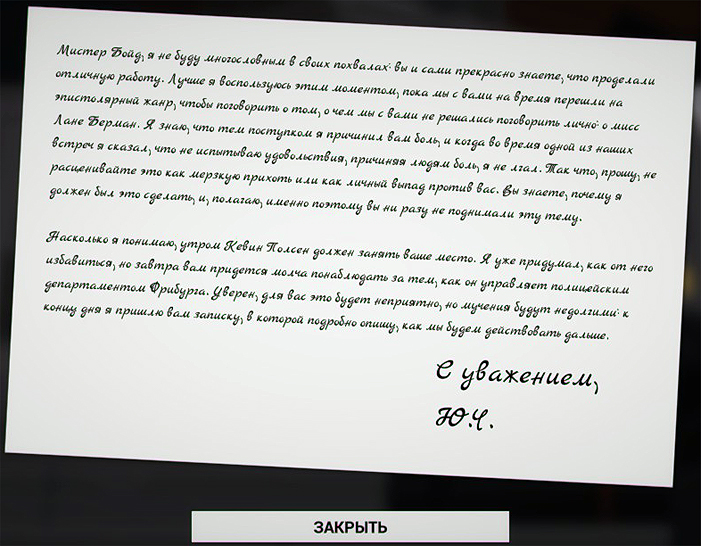 Мистер Бойд, я не буду многословным в своих похвалах: вы и сами прекрасно знаете, что проделали
отличную работу. Лучше я воспользуюсь этим моментом, пока мы с вами на время перешли на
эпистолярный жанр, чтобы поговорить о том, о чем мы с вами не решались поговорить лично: о мисс
Лане Берман. Я знаю, что тем поступком я причинил вам боль, и когда во время одной из наших
встреч я сказал, что не испытываю удовольствия, причиняя людям боль, я не лгал. Так что, прошу, не
расценивайте это как мерзкую прихоть или как личный выпад против вас. Вы знаете, почему я
должен был это сделать, и, полагаю, именно поэтому вы ни разу не поднимали эту тему.
Насколько я понимаю, утром Кевин Полсен должен занять ваше место. Я уже придумал, как от него
избавиться, но завтра вам придется молча понаблюдать за тем, как он управляет полицейским
департаментом Фрибурга. Уверен, для вас это будет неприятно, но мучения будут недолгими: к
концу дня я пришлю вам записку, в которой подробно опишу, как мы будем действовать дальше.
С уважением,
Ю.Ч.
ЗАКРЫТЬ